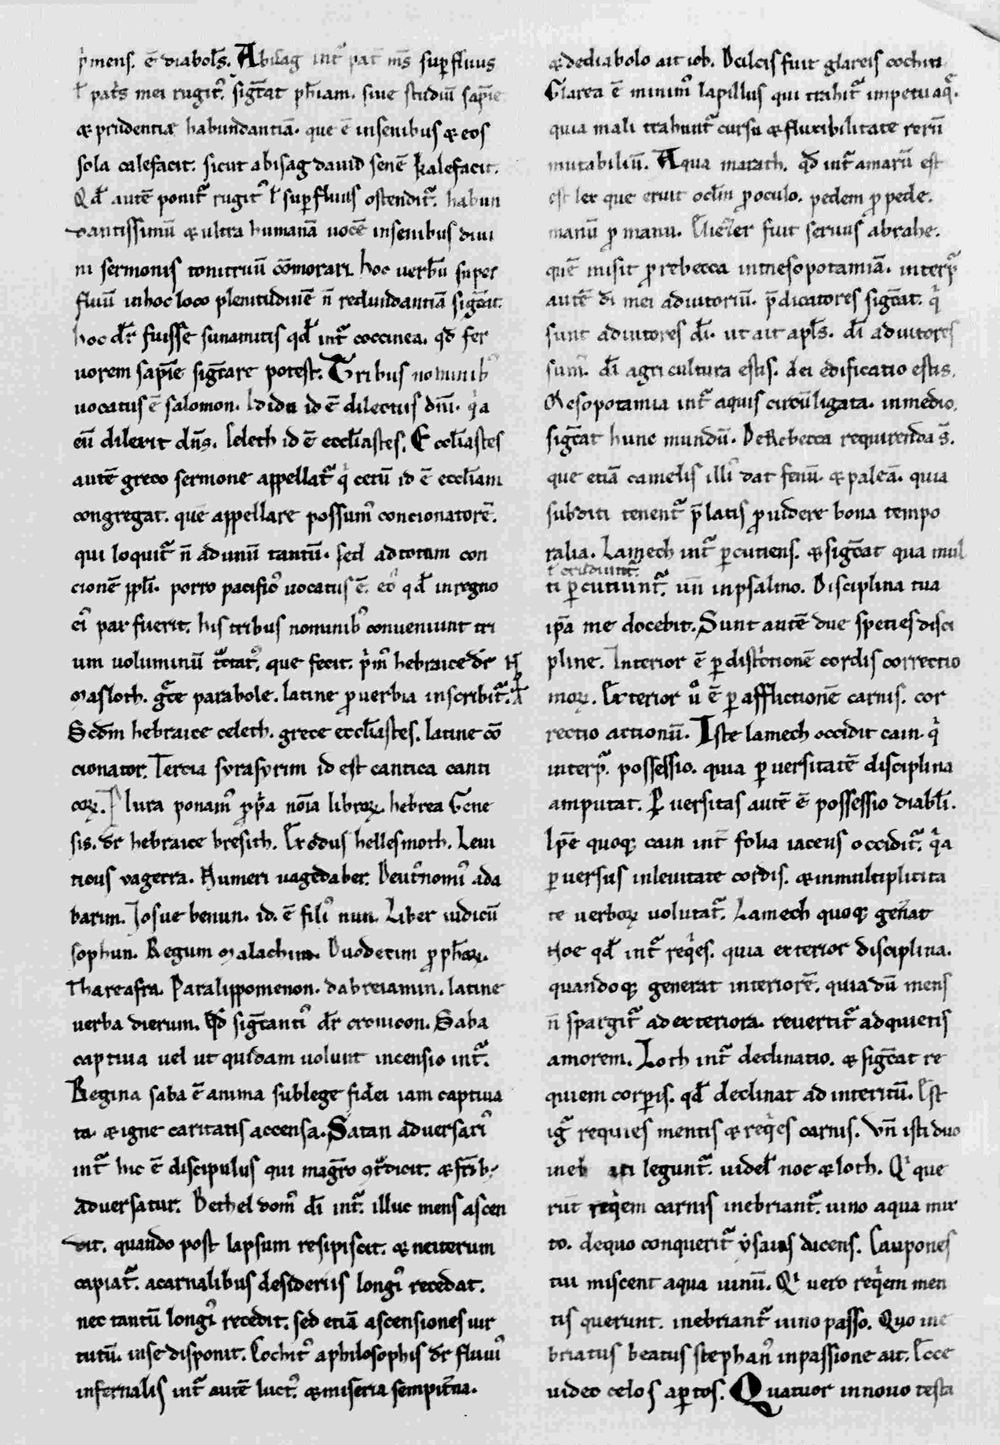 p̓mens. ē diabol̄s. Abisag int̄ pat̄ m̄s sup̱fluus
ł pat̄s mei rugit᷒. sigt̄at ph̄iam. siue studiū sap̄ie
& prudentiæ habundantiā. que ē insenibus & eos
sola calefacit. sicut abisag dauid senē kalefacit.
Qđ autē ponit᷑ rugit᷒ ł sup̱fluus ostendit᷑. habun
dantissimū & ultra humanā uocē insenibus diui
ni sermonis tonitruū c̄omorari. hoc uerbū super
fluū inhoc loco plenitudinē n̄ redundantiā sigt̄at.
hoc dr̄ fuisse sunamitis qđ int̄ coccinea. qđ fer
uorem sap̄ie sigt̄are potest. Tribus nominib᷒
uocatus ē salomon. Ididá id ē dilectus dn̄i. q̓a
eū dilexit dn̄s. Celeth id ē eccl̄iastes. Eccl̄iastes
autē greco sermone appellat᷑ q̓ cetū id ē eccl̄iam
congregat. quē appellare possum᷒ concionatorē.
qui loquit᷑ n̄ adunū tantū. sed adtotam con
cionē ppl̄i. porro pacific᷒ uocatus ē. eo qđ inregno
ei᷒ pax fuerit. his tribus nominib᷒ conueniunt tri
um uoluminū tot̄at᷒. que fecit. p̓m᷒ hebraice dr̄
masloth. gc̄e parabole. latine p̱uerbia inscribit᷑.
Scđm hebraice celeth. grece eccl̄iastes. latine cō
cionator. Tercia syrasyrim id est cantica canti
coꝝ. Plura ponam᷒ p̱p̓a noīa libroꝝ hebrea Gene
sis. dr̄ hebraice bresith. Exodus hellesmoth. Leui
ticus vagetra. Numeri uagedaber. Deut᷒nomi᷒ ada
barim. Iosue benun. id. ē fili᷒ nun. Liber iudicū
sophun. Regum malachim. Duodecim p̱ph̄aꝝ.
thareasra. Paralippomenon. dabreiamin. latine
verba dierum. Qđ sigt̄anti᷒ dr̄ cronicon. Saba
captiua uel ut quidam uolunt incensio int̄᷑.
Regina saba ē anima sublege fidei iam captiua
ta. & igne caritatis accensa. Satan aduersari᷒
int̄ hic ē discipulus qui magr̄o ꝯt᷑dicit. & fr̄ib᷒
aduersatur. Bethel dom᷒ dī int̄. illuc mens ascen
dit. quando post lapsum resipiscit. & neiterum
capiat᷑. acarnalibus desideriis longi᷒ recedat.
nec tantū longi᷒ recedit. sed etiā ascensiones uir
tutū. inse disponit. Cochit᷒ aphilosophis dr̄ fluui᷒
infernalis int̄ autē luct᷒. & miseria sempit̄na.
& dediabolo ait iob. Dulcis fuit glareis cochiti
Glarea ē minim᷒ lapillus qui trahit᷑ impetu aq̄.
quia mali trahunt᷑ cursu & fluxibilitate rerū
mutabiliū. Aqua marath. qđ int̄ amarū est
est lex que eruit oclm̄ p̱oculo. pedem p̱pede.
manū p̱ manu. Eliezer fuit seruus abrahe.
quē misit p̱rebecca inmesopotamiā. interp̄
autē dī mei adiutoriū. p̄dicatores sigt̄at. q̓
sunt adiutores dī. ut ait apl̄s. dī adiutores
sum᷒. dī agri cultura estis. dei edificatio estis.
Mesopotamia int̄ aquis circūligata. inmedio.
sigt̄at hunc mundū. De Rebecca requirenda s̄.
que etiā camelis illi᷒ dat fenū. & paleā. quia
subditi tenent᷑ p̄latis p̱uidere bona tempo
ralia. Lamech int̄ p̱cutiens. & sigt̄at qua mul
ti p̱cutiunt᷑. un̄ inpsalmo. Disciplina tua
ip̄a me docebit. Sunt autē due species disci
pline. Interior ē p̱ dist̓ctionē cordis correctio
moꝝ. Exterior u᷒ ē p̱ afflictionē carnis. cor
rectio actionū. Iste lamech occidit cain. q̓
interp̄. possessio. quia p̱uersitatē disciplina
amputat. P̱uersitas autē ē possessio diabl̄i.
Ip̄e quoq; cain int̄ folia iacens occidit᷑. q̓a
p̱uersus inleuitate cordis. & inmultiplicita
te uerboꝝ uolutat᷑. Lamech quoq; gen̄at
Noe qđ int̄ req̓es. quia exterior disciplina.
quandoq; generat interiorē. quia dū mens
n̄ spargit᷑ ad exteriora. reuertit᷑ adquietis
amorem. Loth int̄ declinatio. & sigt̄at re
quiem corp̱is. qđ declinat ad interitū. Est
ig᷑ requies mentis & req̓es carnis. Vn̄ isti duo
ineb ati legunt᷑. uidel̄ noe & loth. Q̓ que
runt req̓em carnis inebriant᷑. uino aqua mix
to. dequo conquerit᷑ ysaias dicens. Caupones
tui miscent aqua uinū. Q̓ vero req̓em men
tis querunt. inebriant᷑ uino passo. Quo ine
briatus beatus stephan᷒ inpassione ait. Ecce
uideo celos ap̱tos. Quatuor innouo testa